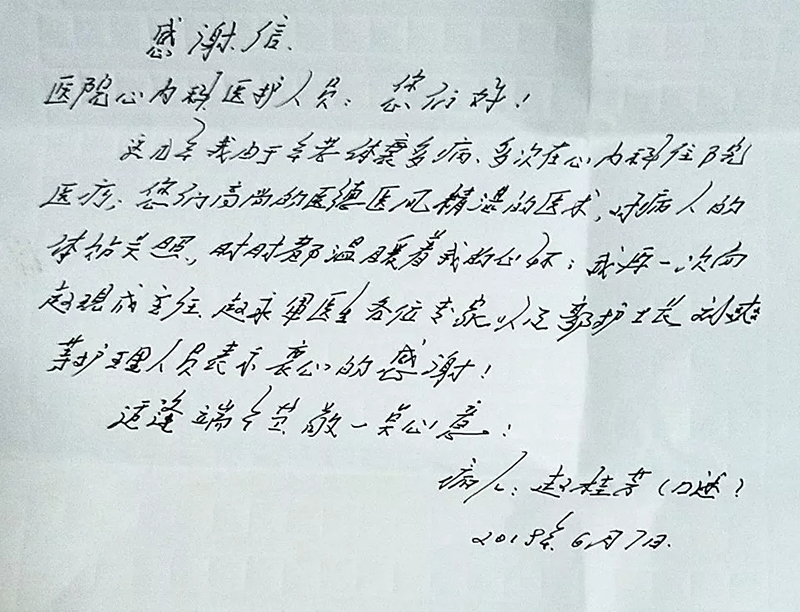 感谢信
医院心内科医护人员：您们好！
这几年我由于年老体衰多病、多次在心内科住院
医疗、您们高尚的医德医风精湛的医术，对病人的
体贴关照，时时都温暖着我的心怀；我再一次向
赵现成主任、赵永军医生各位专家以及郭护士长刘爽
等护理人员表示衷心的感谢！
适逢端午节敬一点心意！
病人：赵桂芳（口述）
2019年6月7日.